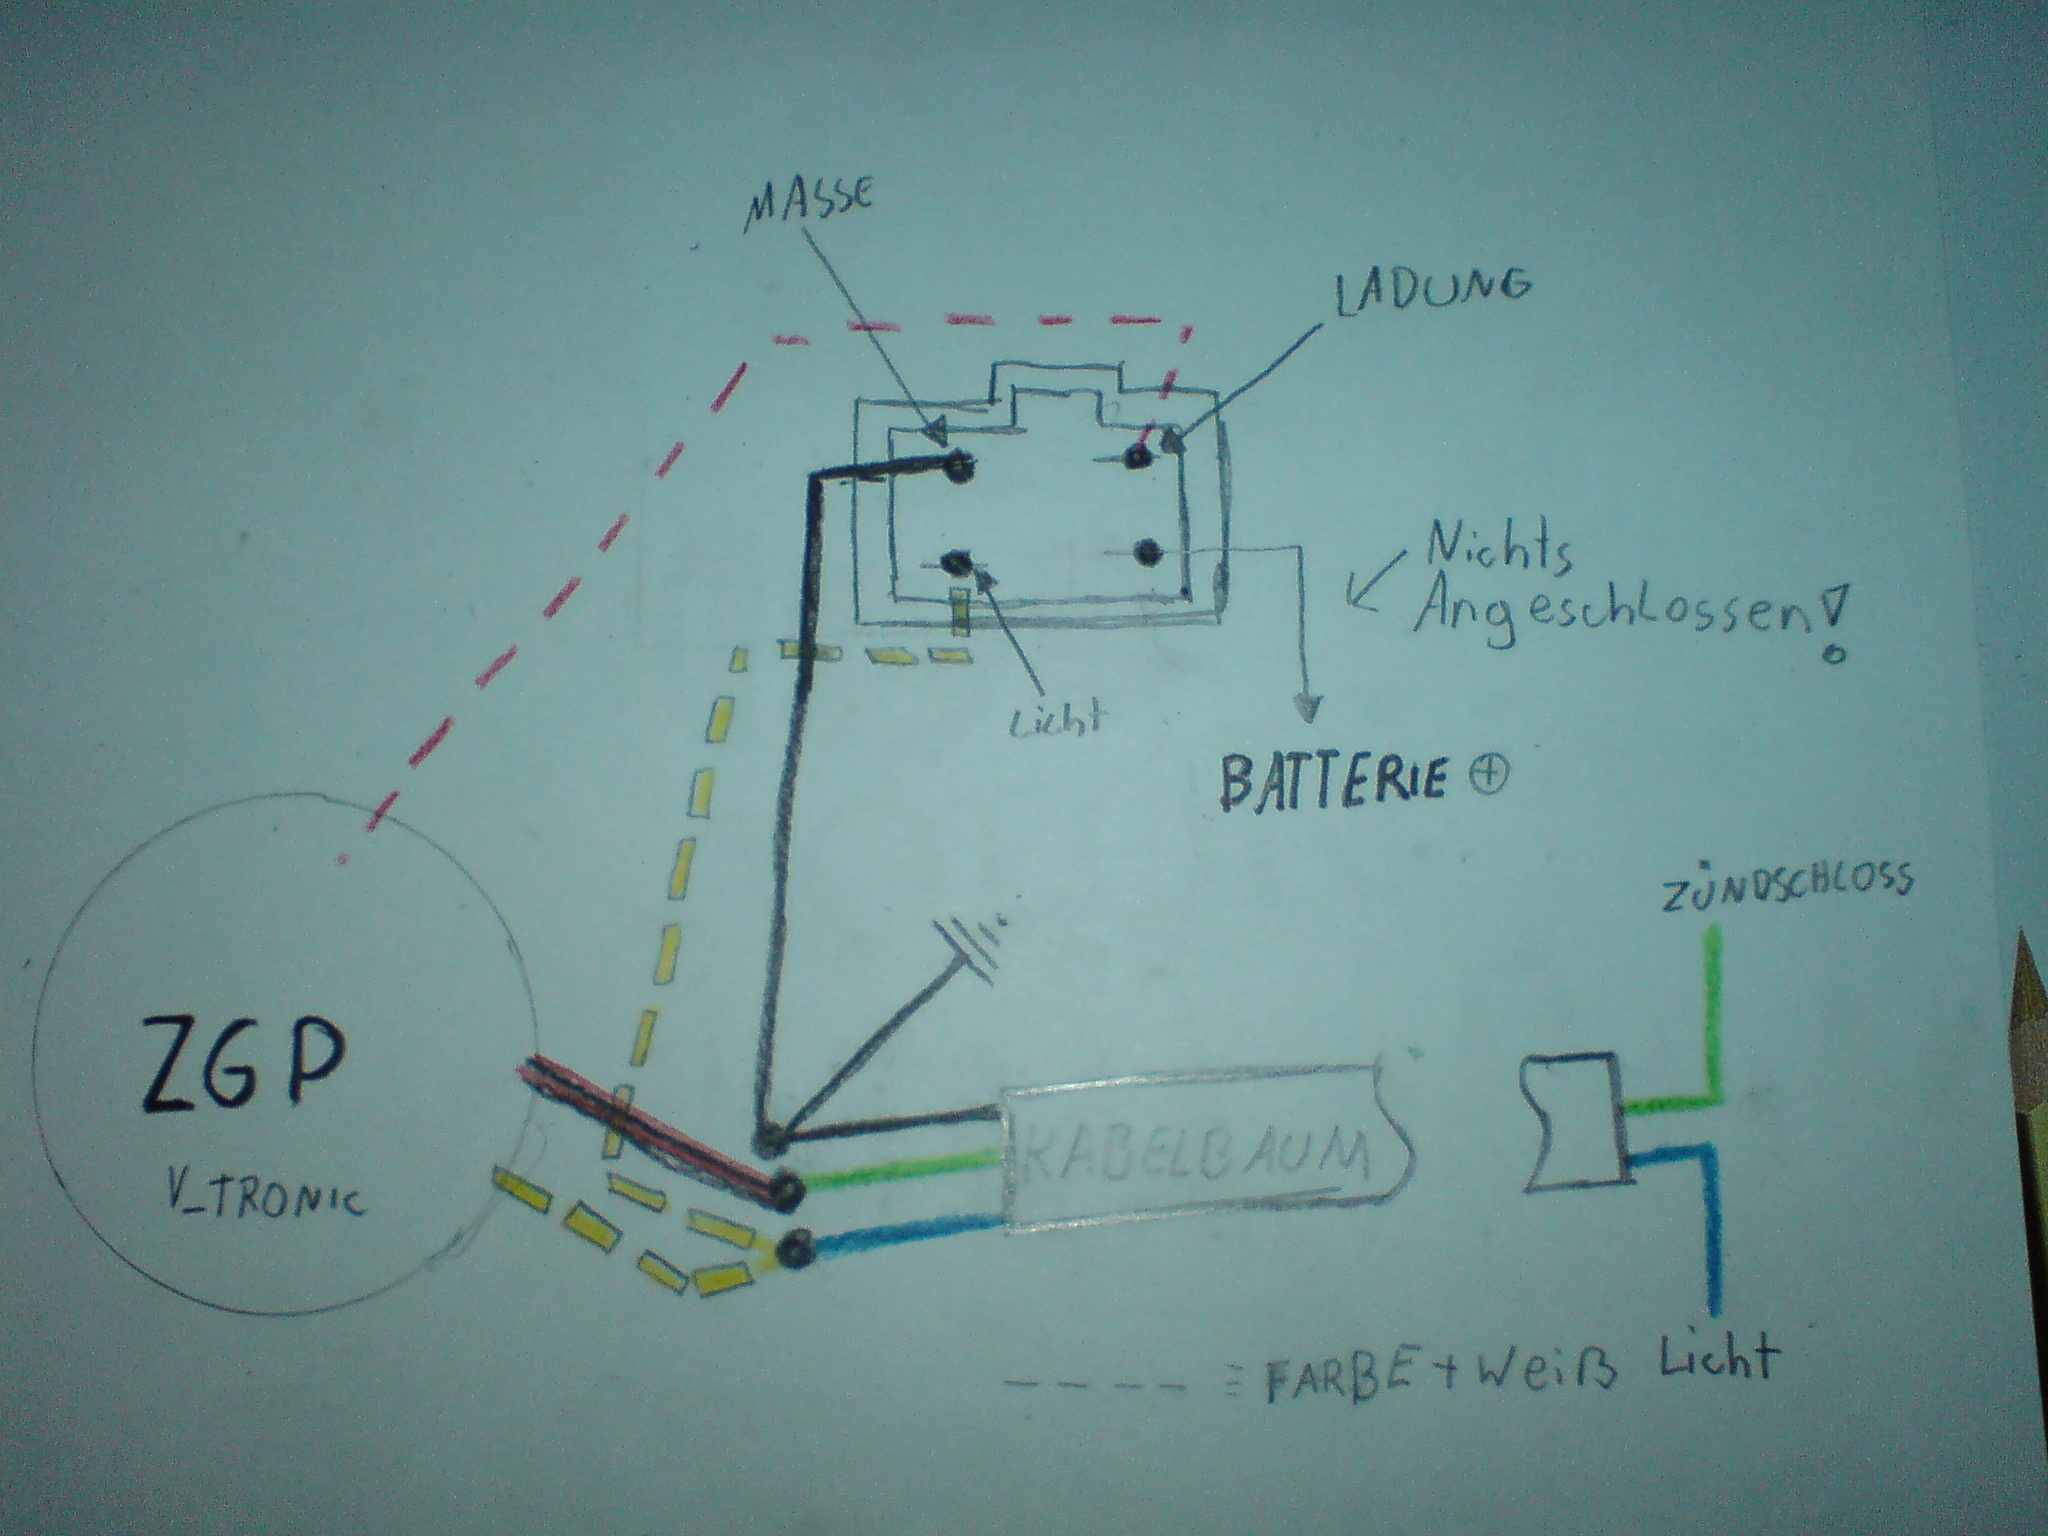 MASSE
LADUNG
Nichts
Angeschlossen!
Licht
BATTERIE +
ZÜNDSCHLOSS
ZGP
V_TRONIC
KABELBAUM
Licht
---- ≡ FARBE + Weiß